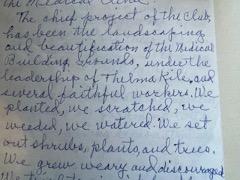 the Medical Clinic.
The chief project of the Club,
has been the landscaping
and beautification of the Medical
Building grounds, under the
leadership of Thelma Kile, and
several faithful workers. We
planted, we scratched, we
weeded, we watered. We set
out shrubs, plants, and trees.
We grew weary and discouraged
We